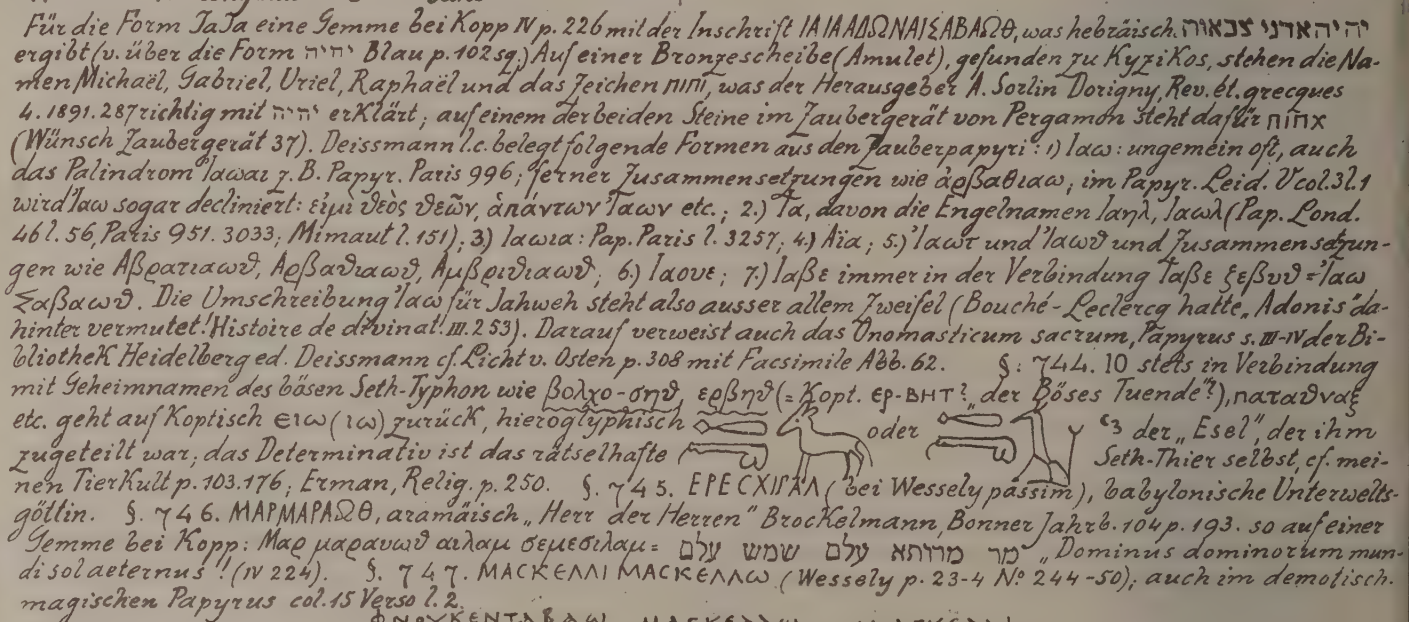 Für die Form JaJa eine Gemme bei Kopp IV p. 226 mit der Inschrift ΙΑΙΑΑΔΩΝΑΙΣΑΒΑΩΘ, was hebräisch יה יה אדני צבאות
ergibt (v. über die Form יהיה Blau p. 102 sq.) Auf einer Bronzescheibe (Amulet), gefunden zu Kyzikos, stehen die Na-
men Michaël, Gabriel, Uriel, Raphaël und das Zeichen πιπι, was der Herausgeber A. Sorlin Dorigny, Rev. ét. grecques
4. 1891. 287 richtig mit יהיה erklärt; auf einem der beiden Steine im Zaubergerät von Pergamon steht dafür
(Wünsch Zaubergerät 37). Deissmann l. c. belegt folgende Formen aus den Zauberpapyri: 1) Ιαω: ungemein oft, auch
das Palindrom Ἰαωαι z. B. Papyr. Paris 996; ferner Zusammensetzungen wie ἀρβαθιαω; im Papyr. Leid. V col. 3 l. 1
wird Ἰαω sogar decliniert: εἰμὶ θεὸς θεῶν, ἁπάντων Ἰάων etc.; 2.) Ἰα, davon die Engelnamen Ιαηλ, Ιαωλ (Pap. Lond.
46 l. 56, Paris 951. 3033; Mimaut l. 151); 3) Ιαωια: Pap. Paris l. 3257; 4.) Αϊα; 5.) Ἰαωτ und Ἰαωθ und Zusammensetzun-
gen wie Αβρατιαωθ, Αρβαθιαωθ, Αμβριθιαωθ; 6.) Ιαουε; 7.) Ιαβε immer in der Verbindung Ἰαβε ζεβυθ = Ἰαω
Σαβαωθ. Die Umschreibung Ἰαω für Jahweh steht also ausser allem Zweifel (Bouché-Leclercq hatte „Adonis" da-
hinter vermutet! Histoire de divinat. III. 253). Darauf verweist auch das Onomasticum sacrum, Papyrus s. III-IV der Bi-
bliothek Heidelberg ed. Deissmann cf. Licht v. Osten p. 308 mit Facsimile Abb. 62. §: 744. ΙΟ stets in Verbindung
mit Geheimnamen des bösen Seth-Typhon wie βολχο-σηθ, ερβηθ (= Kopt. ⲉⲣ-ⲃⲏⲧ? „der Böses Tuende"?), παταθναξ
etc. geht auf Koptisch ⲉⲓⲱ (ⲓⲱ) zurück, hieroglyphisch oder ꜥꜣ der „Esel", der ihm
zugeteilt war; das Determinativ ist das rätselhafte Seth-Thier selbst, cf. mei-
nen Tierkult p. 103. 176; Erman, Relig. p. 250. §. 745. ΕΡΕΣΧΙΓΑΛ (bei Wessely passim), babylonische Unterwelts-
göttin. §. 746. ΜΑΡΜΑΡΑΩΘ, aramäisch „Herr der Herren" Brockelmann, Bonner Jahrb. 104 p. 193. so auf einer
Gemme bei Kopp: Μαρ μαραυωθ αιλαμ σεμεσιλαμ = מר מרותא עלם שמש עלם „Dominus dominorum mun-
di sol aeternus"! (IV 224). §. 747. ΜΑΣΚΕΛΛΙ ΜΑΣΚΕΛΛΩ (Wessely p. 23-4 Nº 244-50); auch im demotisch.
magischen Papyrus col. 15 Verso l. 2.